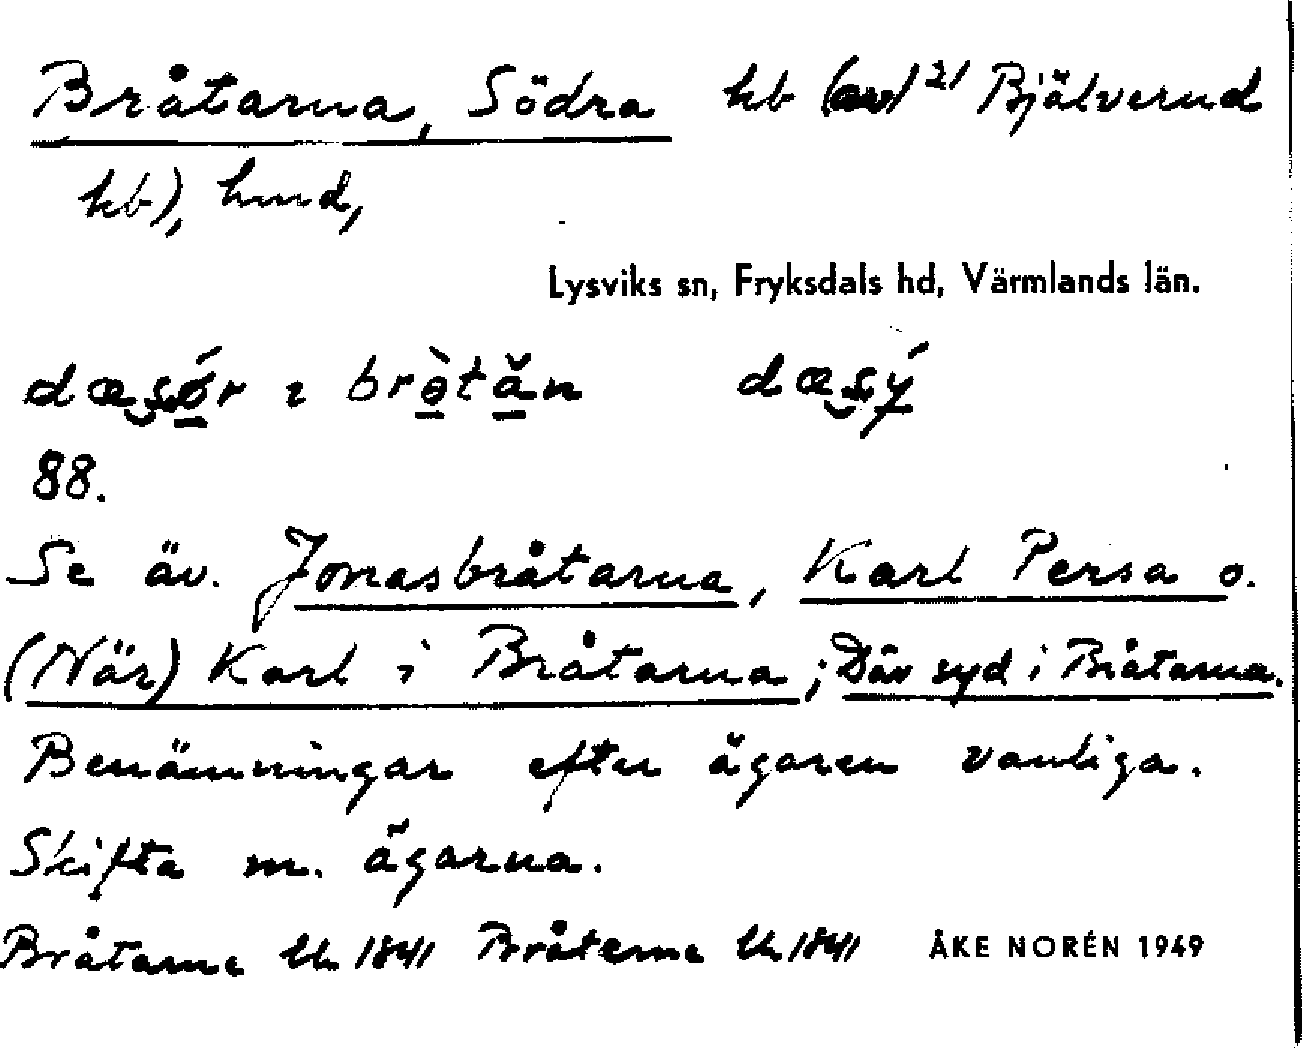 Bråtarna, Södra hb (av 2/ Bjälverud
hb), hmd,
Lysviks sn, Fryksdals hd, Värmlands län.
88.
Se äv. Jonasbråtarna, Karl Persa o.
(När) Karl i Bråtarna; Där syd i Bråtarna.
Benämningar efter ägaren vanliga.
Skifta m. ägarna.
Bråtarne 1841 Bråterne 1841 ÅKE NORÉN 1949